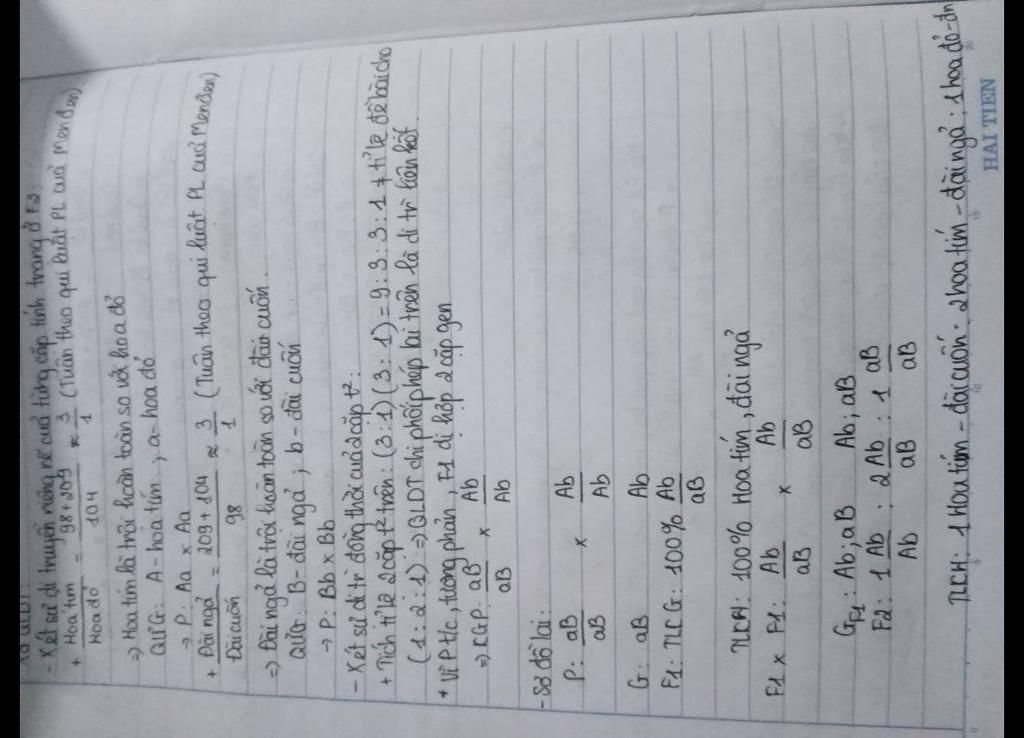 - Xét sự di truyền riêng rẽ của từng cặp tính trạng ở F2:
+ Hoa tím / Hoa đỏ = 98 + 209 / 104 ≈ 3 / 1 (Tuân theo qui luật PL của Menđen)
=> Hoa tím là trội hoàn toàn so với hoa đỏ
QƯG: A - hoa tím ; a - hoa đỏ
→ P: Aa x Aa
+ Đài ngả / Đài cuốn = 209 + 104 / 98 ≈ 3 / 1 (Tuân theo qui luật PL của Menđen)
=> Đài ngả là trội hoàn toàn so với đài cuốn
QƯG: B - đài ngả ; b - đài cuốn
→ P: Bb x Bb
- Xét sự di tr đồng thời của 2 cặp t²:
+ Tích tỉ lệ 2 cặp t² trên: (3:1)(3:1) = 9:3:3:1 ≠ tỉ lệ đề bài cho
(1:2:1) => QLDT chi phối phép lai trên là di tr liên kết
+ Vì P t/c, tương phản, F1 dị hợp 2 cặp gen
=> KGP: aB/aB x Ab/Ab
- Sơ đồ lai:
P: aB/aB x Ab/Ab
G: aB Ab
F1: TLKG: 100% Ab/aB
TLKH: 100% Hoa tím, đài ngả
F1 x F1: Ab/aB x Ab/aB
G F1: Ab; aB Ab; aB
F2: 1 Ab/Ab : 2 Ab/aB : 1 aB/aB
TLKH: 1 Hoa tím - đài cuốn : 2 hoa tím - đài ngả : 1 hoa đỏ - đn
HAI TIEN